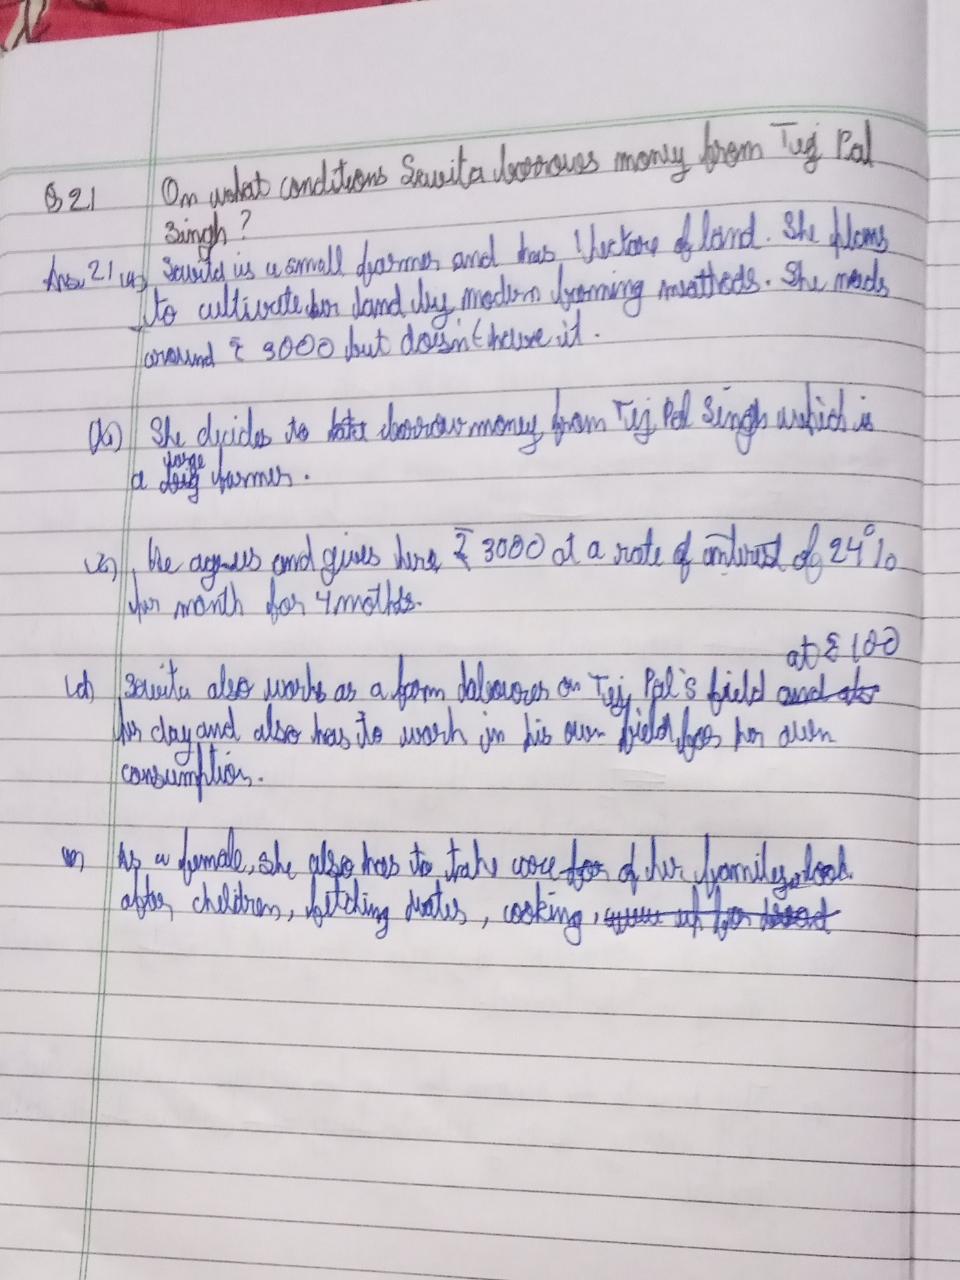 Q 21 On what conditions Savita borrows money from Tej Pal
Singh?
Ans. 21 (a) Savita is a small farmer and has 1 hectare of land. She plans
to cultivate her land by modern farming methods. She needs
around ₹ 3000 but doesn't have it.
(b) She decides to borrow money from Tej Pal Singh which is
large
a big farmer.
(c) He agrees and gives her ₹ 3000 at a rate of interest of 24%
per month for 4 moths.
at ₹ 100
(d) Savita also works as a farm labourer on Tej Pal's field and also
per day and also has to work in his own field for her own
consumption.
(e) As a female, she also has to take care for of her family, look
after children, fetching water, cooking,